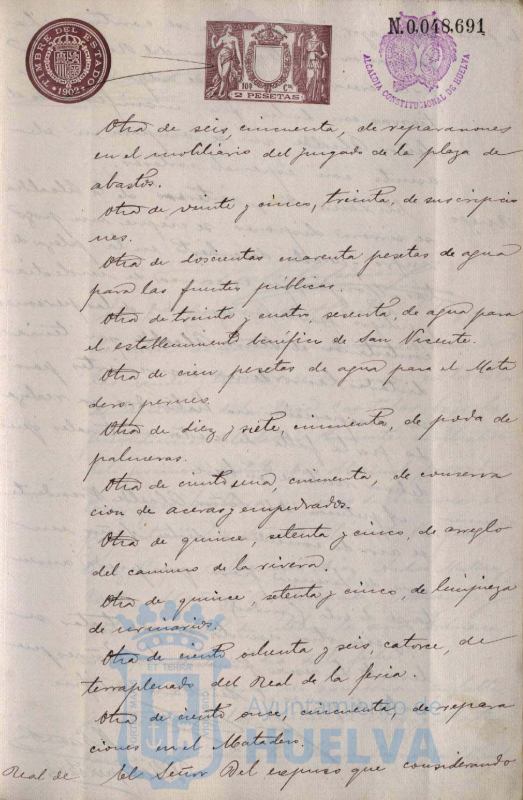 TIMBRE DEL ESTADO
1902
100 Cs.
2 PESETAS
N.0.048.691
ALCALDIA CONSTITUCIONAL DE HUELVA
Otra de seis, cincuenta, de reparaciones
en el mobiliario del juzgado de la plaza de
abastos.
Otra de veinte y cinco, treinta, de suscripcio
nes.
Otra de doscientas cuarenta pesetas de agua
para las fuentes públicas.
Otra de treinta y cuatro, sesenta, de agua para
el establecimiento benéfico de San Vicente.
Otra de cien pesetas de agua para el Mata
dero
Otra de diez y siete, cincuenta, de poda de
palmeras.
Otra de ciento una, cincuenta, de conserva
cion de aceras y empedrados.
Otra de quince, setenta y cinco, de arreglo
del camino de la rivera.
Otra de quince, setenta y cinco, de limpieza
de urinarios.
Otra de ciento ochenta y seis, catorce, de
terraplenado del Real de la feria.
Otra de ciento once, cincuenta, de repara
ciones en el Matadero.
Real de El Señor Del expuso que considerando
Ayuntamiento de
HUELVA